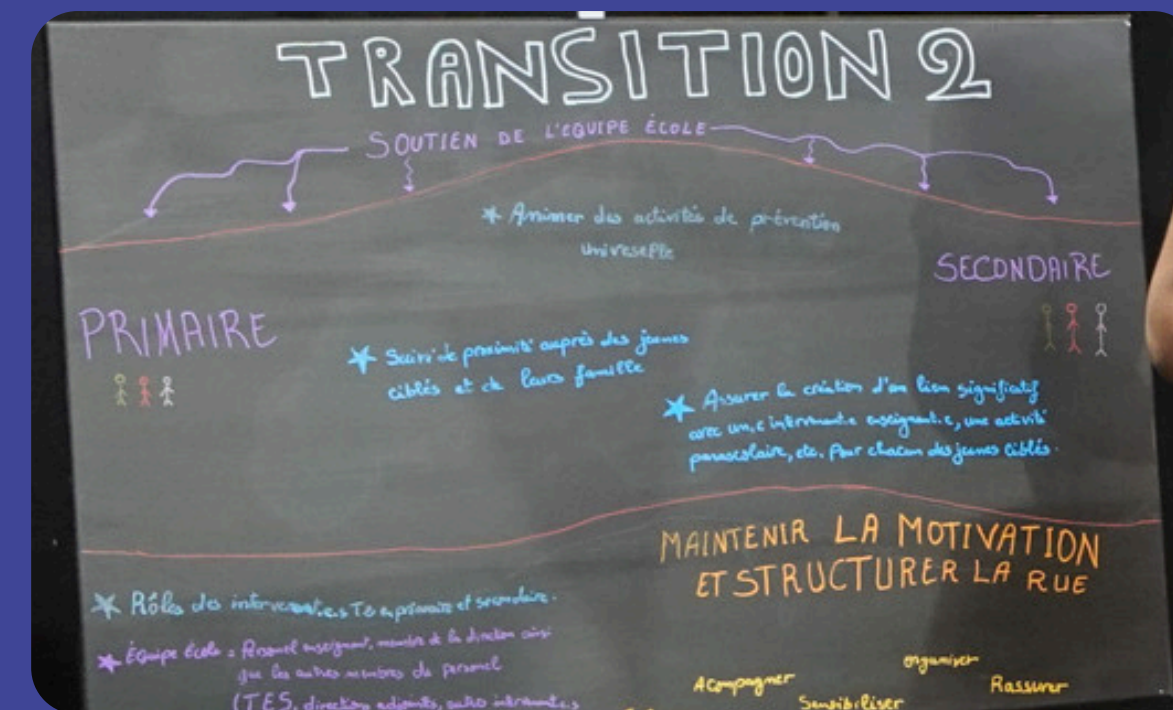 TRANSITION 2
SOUTIEN DE L'EQUIPE ÉCOLE
* Animer des activités de prévention
univeselle
SECONDAIRE
PRIMAIRE
* Suivi de proximité auprès des jeunes
ciblés et de leurs famille
* Assurer la création d'un lien significatif
avec un.e intervenant.e enseignant.e, une activité
parascolaire, etc. Pour chacun des jeunes ciblés.
MAINTENIR LA MOTIVATION
ET STRUCTURER LA RUE
* Rôles des intervenant.e.s TS en primaire et secondaire.
* Équipe école = Personnel enseignant, membre de la direction ainsi
que les autres membres du personnel
(TES, direction adjointe, autre intervenant.e.s
organiser
Acompagner
Rassurer
Sensibiliser